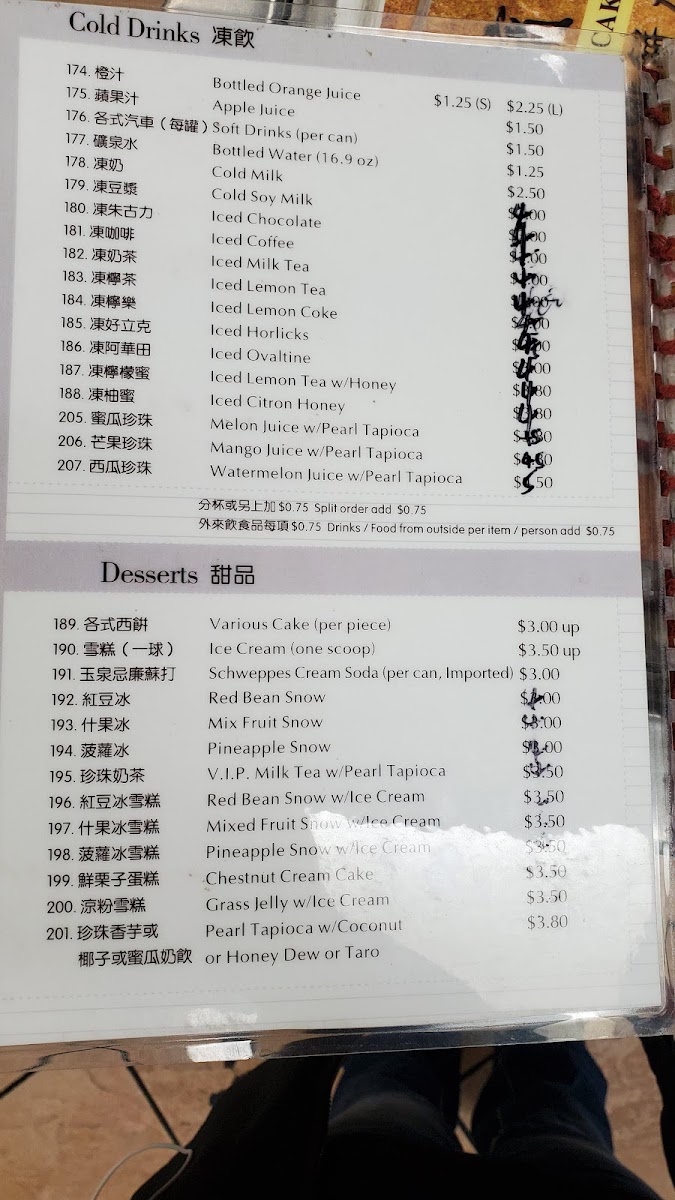 CAK
Cold Drinks 凍飲
174. 橙汁 Bottled Orange Juice $1.25 (S) $2.25 (L)
175. 蘋果汁 Apple Juice $1.50
176. 各式汽車（每罐） Soft Drinks (per can) $1.50
177. 礦泉水 Bottled Water (16.9 oz) $1.25
178. 凍奶 Cold Milk $2.50
179. 凍豆漿 Cold Soy Milk
180. 凍朱古力 Iced Chocolate
181. 凍咖啡 Iced Coffee
182. 凍奶茶 Iced Milk Tea
183. 凍檸茶 Iced Lemon Tea
184. 凍檸樂 Iced Lemon Coke
185. 凍好立克 Iced Horlicks
186. 凍阿華田 Iced Ovaltine
187. 凍檸檬蜜 Iced Lemon Tea w/Honey
188. 凍柚蜜 Iced Citron Honey
205. 蜜瓜珍珠 Melon Juice w/Pearl Tapioca
206. 芒果珍珠 Mango Juice w/Pearl Tapioca
207. 西瓜珍珠 Watermelon Juice w/Pearl Tapioca
分杯或另上加 $0.75 Split order add $0.75
外來飲食品每項 $0.75 Drinks / Food from outside per item / person add $0.75
Desserts 甜品
189. 各式西餅 Various Cake (per piece) $3.00 up
190. 雪糕（一球） Ice Cream (one scoop) $3.50 up
191. 玉泉忌廉蘇打 Schweppes Cream Soda (per can, Imported) $3.00
192. 紅豆冰 Red Bean Snow
193. 什果冰 Mix Fruit Snow
194. 菠蘿冰 Pineapple Snow
195. 珍珠奶茶 V.I.P. Milk Tea w/Pearl Tapioca $3.50
196. 紅豆冰雪糕 Red Bean Snow w/Ice Cream $3.50
197. 什果冰雪糕 Mixed Fruit Snow w/Ice Cream $3.50
198. 菠蘿冰雪糕 Pineapple Snow w/Ice Cream $3.50
199. 鮮栗子蛋糕 Chestnut Cream Cake $3.50
200. 涼粉雪糕 Grass Jelly w/Ice Cream $3.50
201. 珍珠香芋或 Pearl Tapioca w/Coconut $3.80
椰子或蜜瓜奶飲 or Honey Dew or Taro